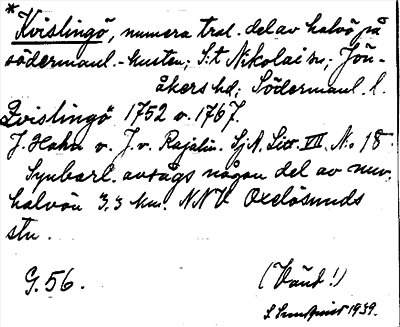 * Kvislingö, numera tral. del av halvö på
södermanl.-kusten; S:t Nikolai sn; Jön-
åkers hd; Södermanl. l.
Qvislingö 1752 o. 1767.
J. Hahn o. J. v. Rajalin. SjA. Litt. VII. No 18.
Synbarl. avsågs någon del av nuv.
halvön 3,3 km. NNV Oxelösunds
stn.
G. 56.
(Vänd!)
S Lundqvist 1939.